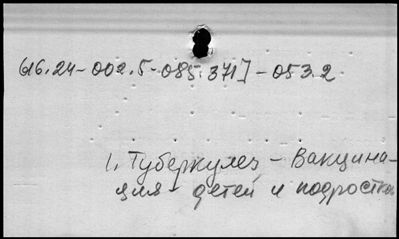 616.24-002.5-085.371]-053.2
1. Туберкулез - Вакцина-
ция - детей и подростков